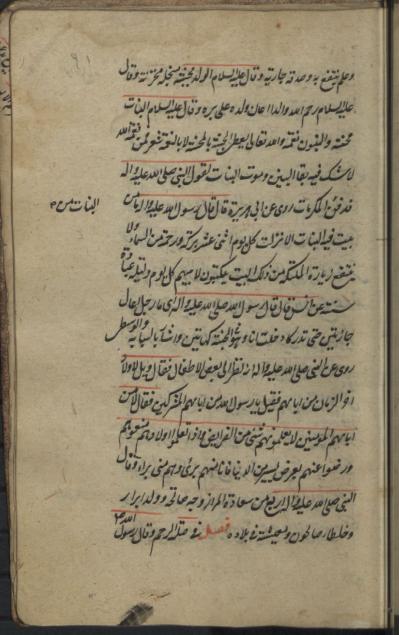 وعلم ينتفع به وصدقة جارية وقال عليه السلام الولد مجبنة مبخلة محزنة وقال
عليه السلام رحم الله والدا اعان ولده على بره وقال عليه السلام البنات
محنة والبنون نعمة والله تعالى يعطى الجنة بالمحنة لا بالنعمة
لا شك فيه بقاء البنين وموت البنات لقول النبى صلى الله عليه واله
قد دفن المكرمات روى عن ابى هريرة قال قال رسول الله عليه واله ما من
بيت فيه البنات الا نزلت كل يوم اثنى عشر بركة ورحمة من السماء ولا
ينقطع زيارة الملئكة من ذلك البيت يكتبون لابيهم كل يوم وليلة عبادة
سنة عن انس قال قال رسول الله صلى الله عليه واله من عال
جاريتين حتى تدركا دخلت انا وهو الجنة كهاتين واشار بالسبابة والوسطى
روى عن النبى صلى الله عليه واله انه نظر الى بعض الاطفال فقال ويل لاولاد
اخر الزمان من ابائهم فقيل يا رسول الله من ابائهم المشركين فقال لا من
ابائهم المؤمنين لا يعلمونهم شيئا من الفرايض واذا تعلموا اولادهم منعوهم
ورضوا عنهم بعرض يسير من الدنيا فانا منهم برئ وهم منى براء وقال
النبى صلى الله عليه واله اربع من سعادة المرء زوجة صالحة وولد ابرار
وخلطاء صالحون ومعيشة فى بلاده فصل فى صلة الرحم وقال رسول الله